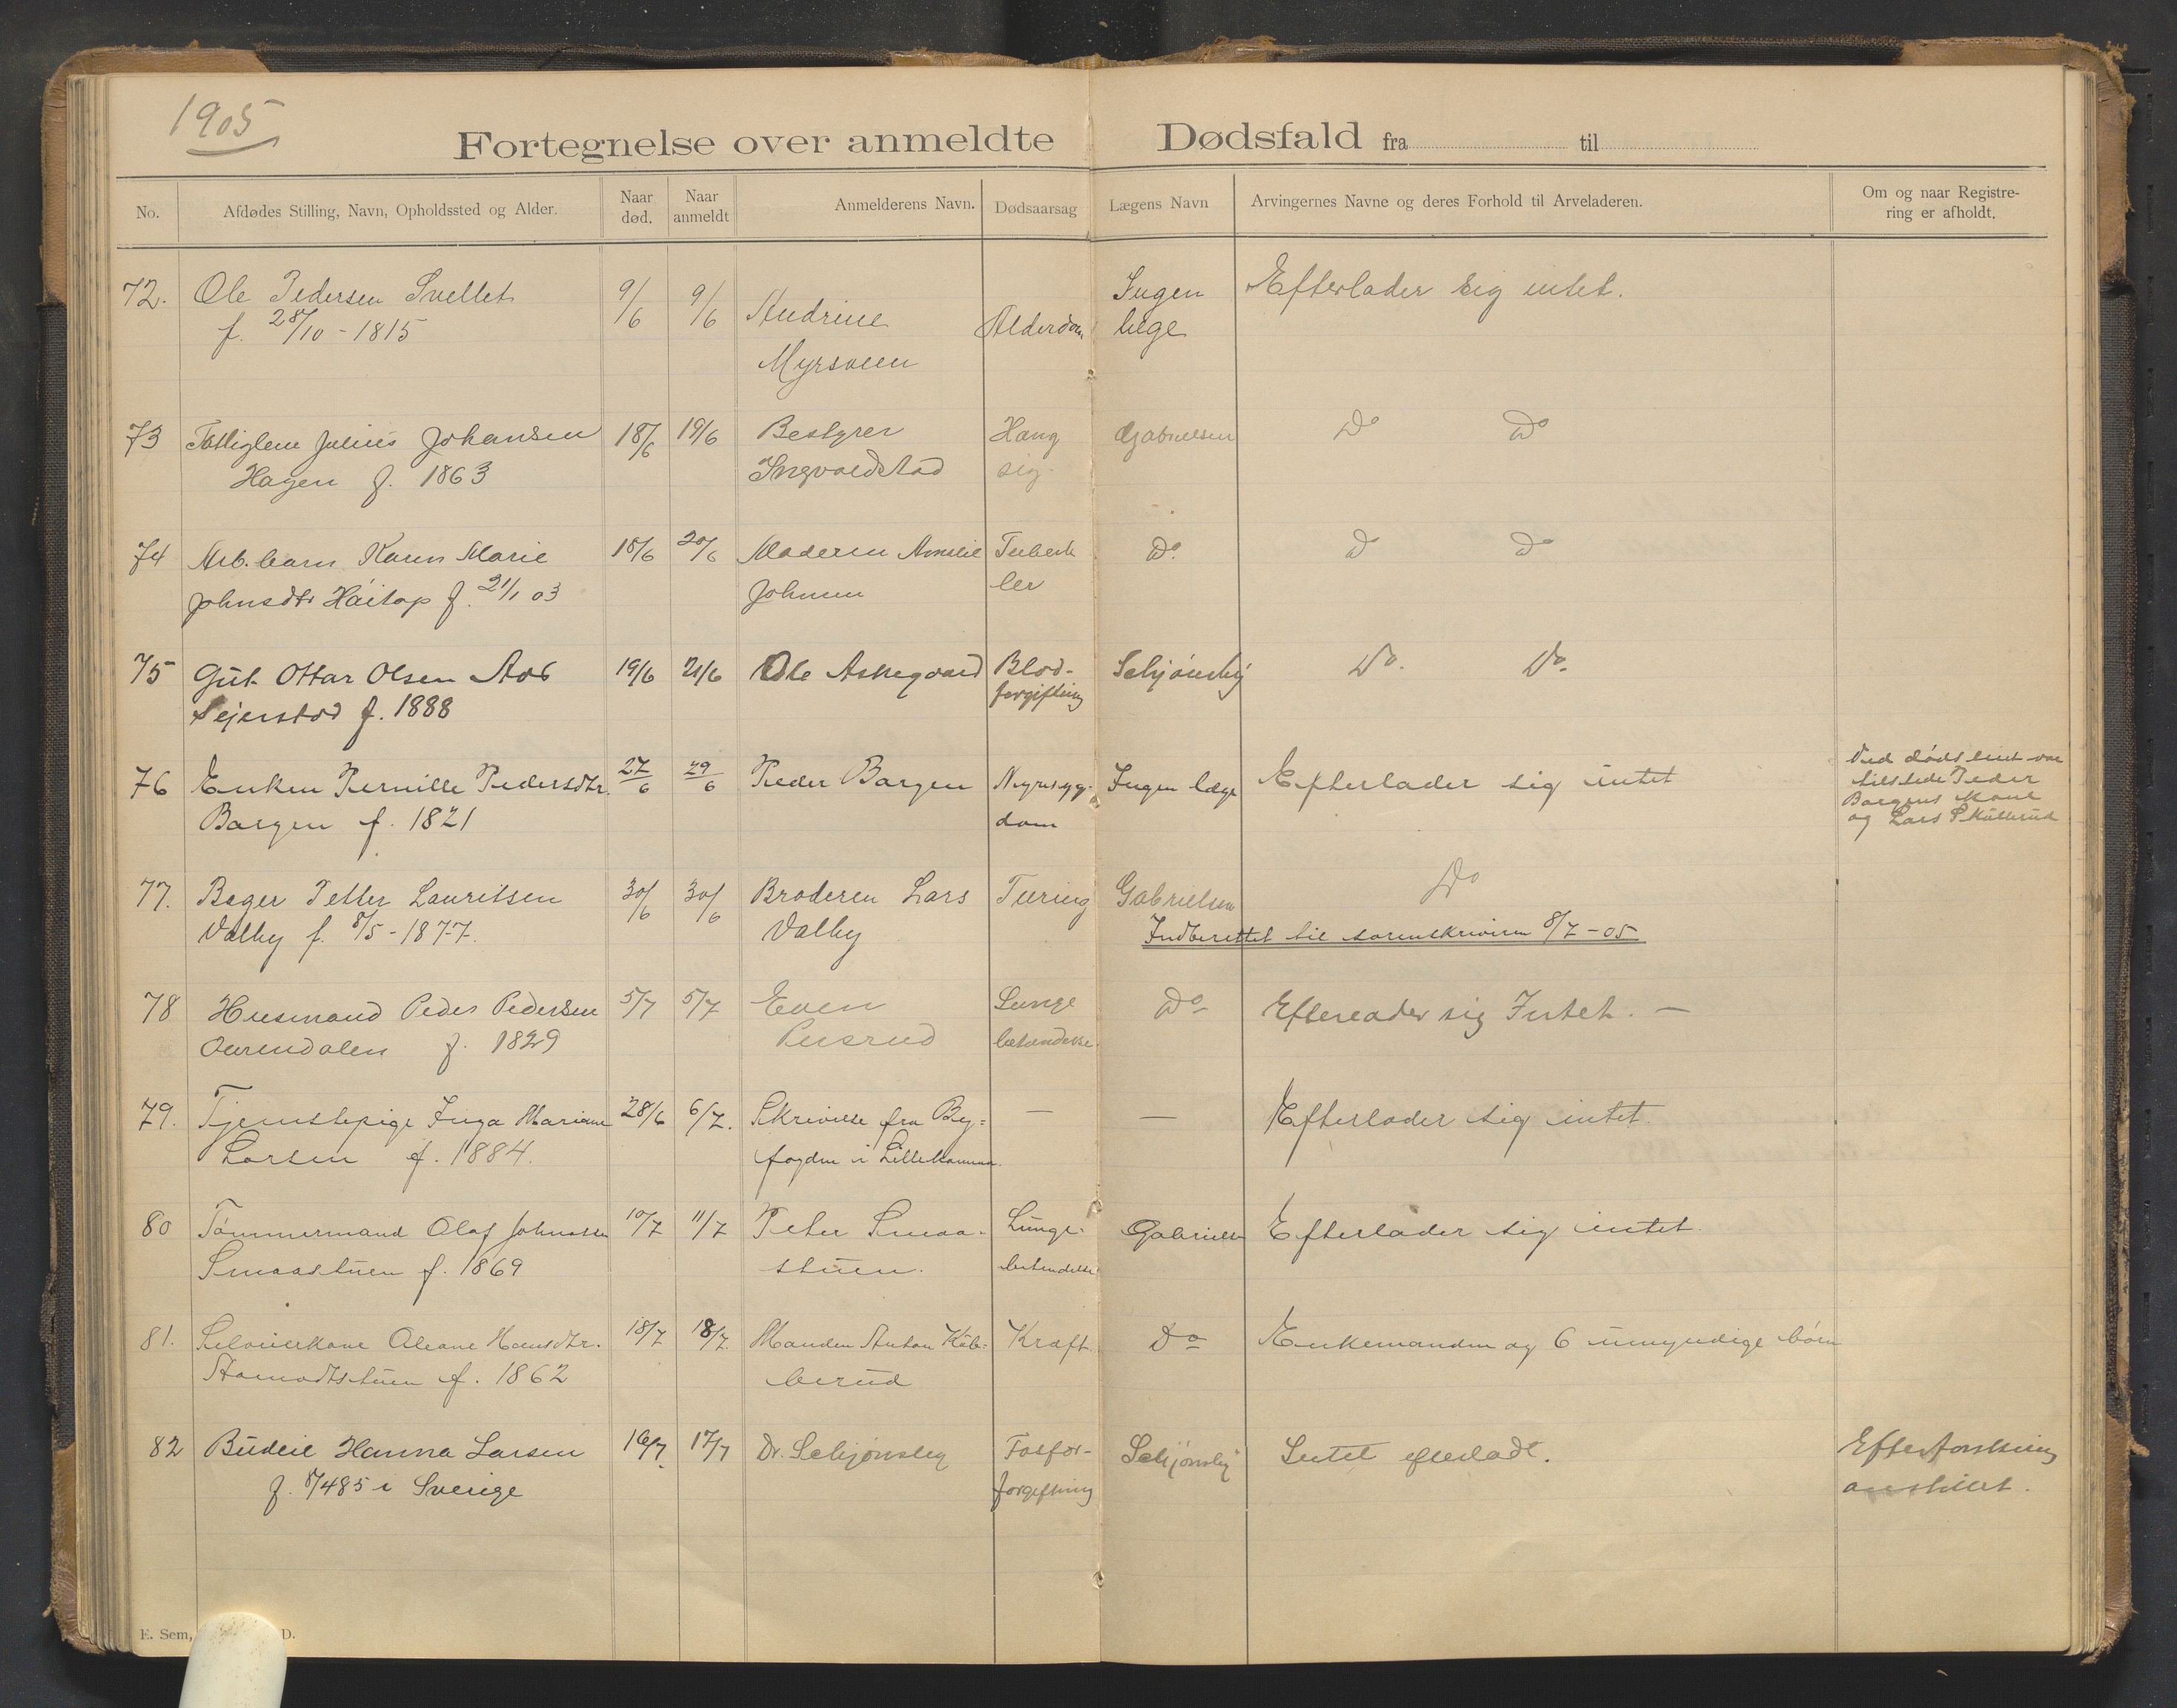 1905
Fortegnelse over anmeldte Dødsfald fra til
No. Afdødes Stilling, Navn, Opholdssted og Alder. Naar død. Naar anmeldt Anmelderens Navn. Dødsaarsag Lægens Navn Arvingernes Navne og deres Forhold til Arveladeren. Om og naar Registrering er afholdt.
72. Ole Pedersen Svellet 9/6 9/6 Andrine Alderdom Ingen Efterlader sig intet.
f. 28/10 - 1815 Myrsveen læge
73 Fattiglem Julius Johansen 18/6 19/6 Bestyrer Hang Gabrielsen Do Do
Hagen f. 1863 Ingvoldstad sig.
74 Arb. barn Karen Marie 18/6 20/6 Moderen Amalie Tuberk Do. Do Do
Johnsdtr f. 21/1 03 Johnsen ler
75 Gut Ottar Olsen Aas 19/6 21/6 Ole Askegaard Blod- Schjønsby Do. Do.
Sejerstad f. 1888 forgiftning
76 Enken Pernille Pedersdtr. 27/6 29/6 Peder Bargen Nyresyg- Ingen læge Efterlader sig intet Ved dødsleiet var
Bargen f. 1821 dom tilstede Peder
Bargens Kone
og Lars
77. Petter Lauritsen 30/6 30/6 Broderen Lars Tæring Gabrielsen Do
Valby f. 8/5 - 1877. Valby Indberettet til sorenskriveren 8/7 - 05
78 Husmand Peder Pedersen 5/7 5/7 Even Lunge Do Efterlader sig Intet. —
f. 1829 betændelse
79. Tjenestepige Inga Mariane 28/6 6/7. Skrivelse fra By= — — Efterlader sig intet.
Larsen f. 1884. fogden i Lillehammer.
80 Tømmermand Olaf Johnsen 10/7 11/7 Peter Smaa- Lunge- Gabrielsen Efterlader sig intet.
Smaastuen f. 1869 stuen. betændelse
81. Selveierkone Oleane Hansdtr. 18/7 18/7. Manden Anton Kræft. Do Enkemanden og 6 umyndige børn
f. 1862 berud
82 Budeie Hanna Larsen 16/7. 17/7 Dr. Schjønsby Fosfor- Schjønsby Intet efterladt. Efterforskning
f. 8/4 85 i Sverige forgiftning anstillet.
E. Sem, D.